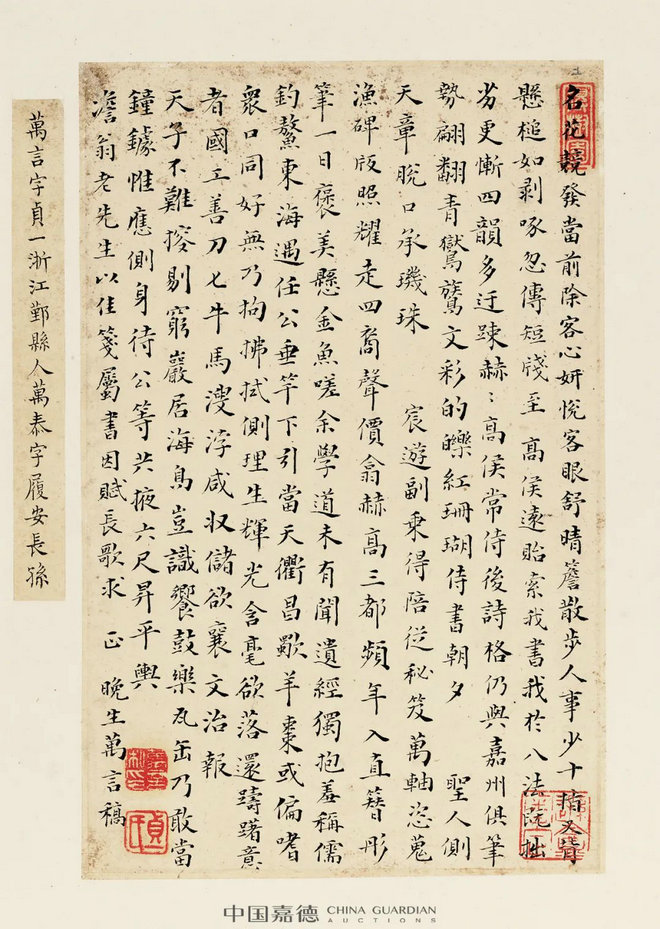 名花競發當前除客心妍悅客眼舒晴簷散步人事少十指又胥
懸槌如剥啄忽傳短牋至高侯遠貽索我書我於八法既拙
劣更慚四韻多迂疎赫〻高侯常侍後詩格仍與嘉州俱筆
勢翩翻青嶽鸑鷟文彩的皪紅珊瑚侍書朝夕 聖人側
天章脫口承璣珠 宸遊副乘得陪從秘笈萬軸恣蒐
漁碑版照耀走四裔聲價翕赫高三都頻年入直簪彤
筆一日褒美懸金魚嗟余學道未有聞遺經獨抱羞稱儒
釣鰲東海遇任公垂竿下引當天衢昌歜羊棗或偏嗜
衆口同好無乃拘拂拭側理生輝光含毫欲落還躊躇意
者國工善刀匕牛馬溲浡咸収儲欲襄文治報
天子不難搜剔窮巖居海鳥豈識饗鼓樂瓦缶乃敢當
鐘鐻惟應側身待公等共掖六尺昇平輿
澹翁老先生以佳箋屬書因賦長歌求 正 晚生萬言稿
貞一
萬言字貞一浙江鄞縣人萬泰字履安長孫
中国嘉德 CHINA GUARDIAN AUCTIONS